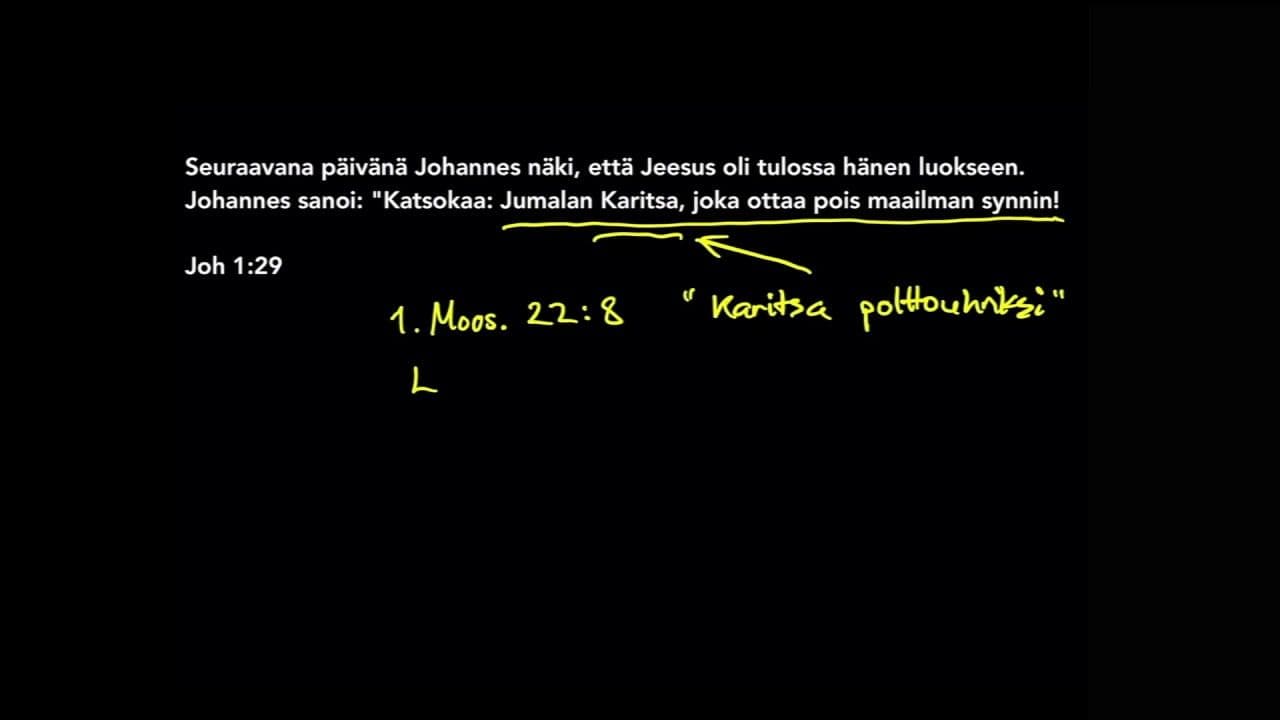 Seuraavana päivänä Johannes näki, että Jeesus oli tulossa hänen luokseen.
Johannes sanoi: "Katsokaa: Jumalan Karitsa, joka ottaa pois maailman synnin!
Joh 1:29
1. Moos. 22:8 "Karitsa polttouhriksi"
L